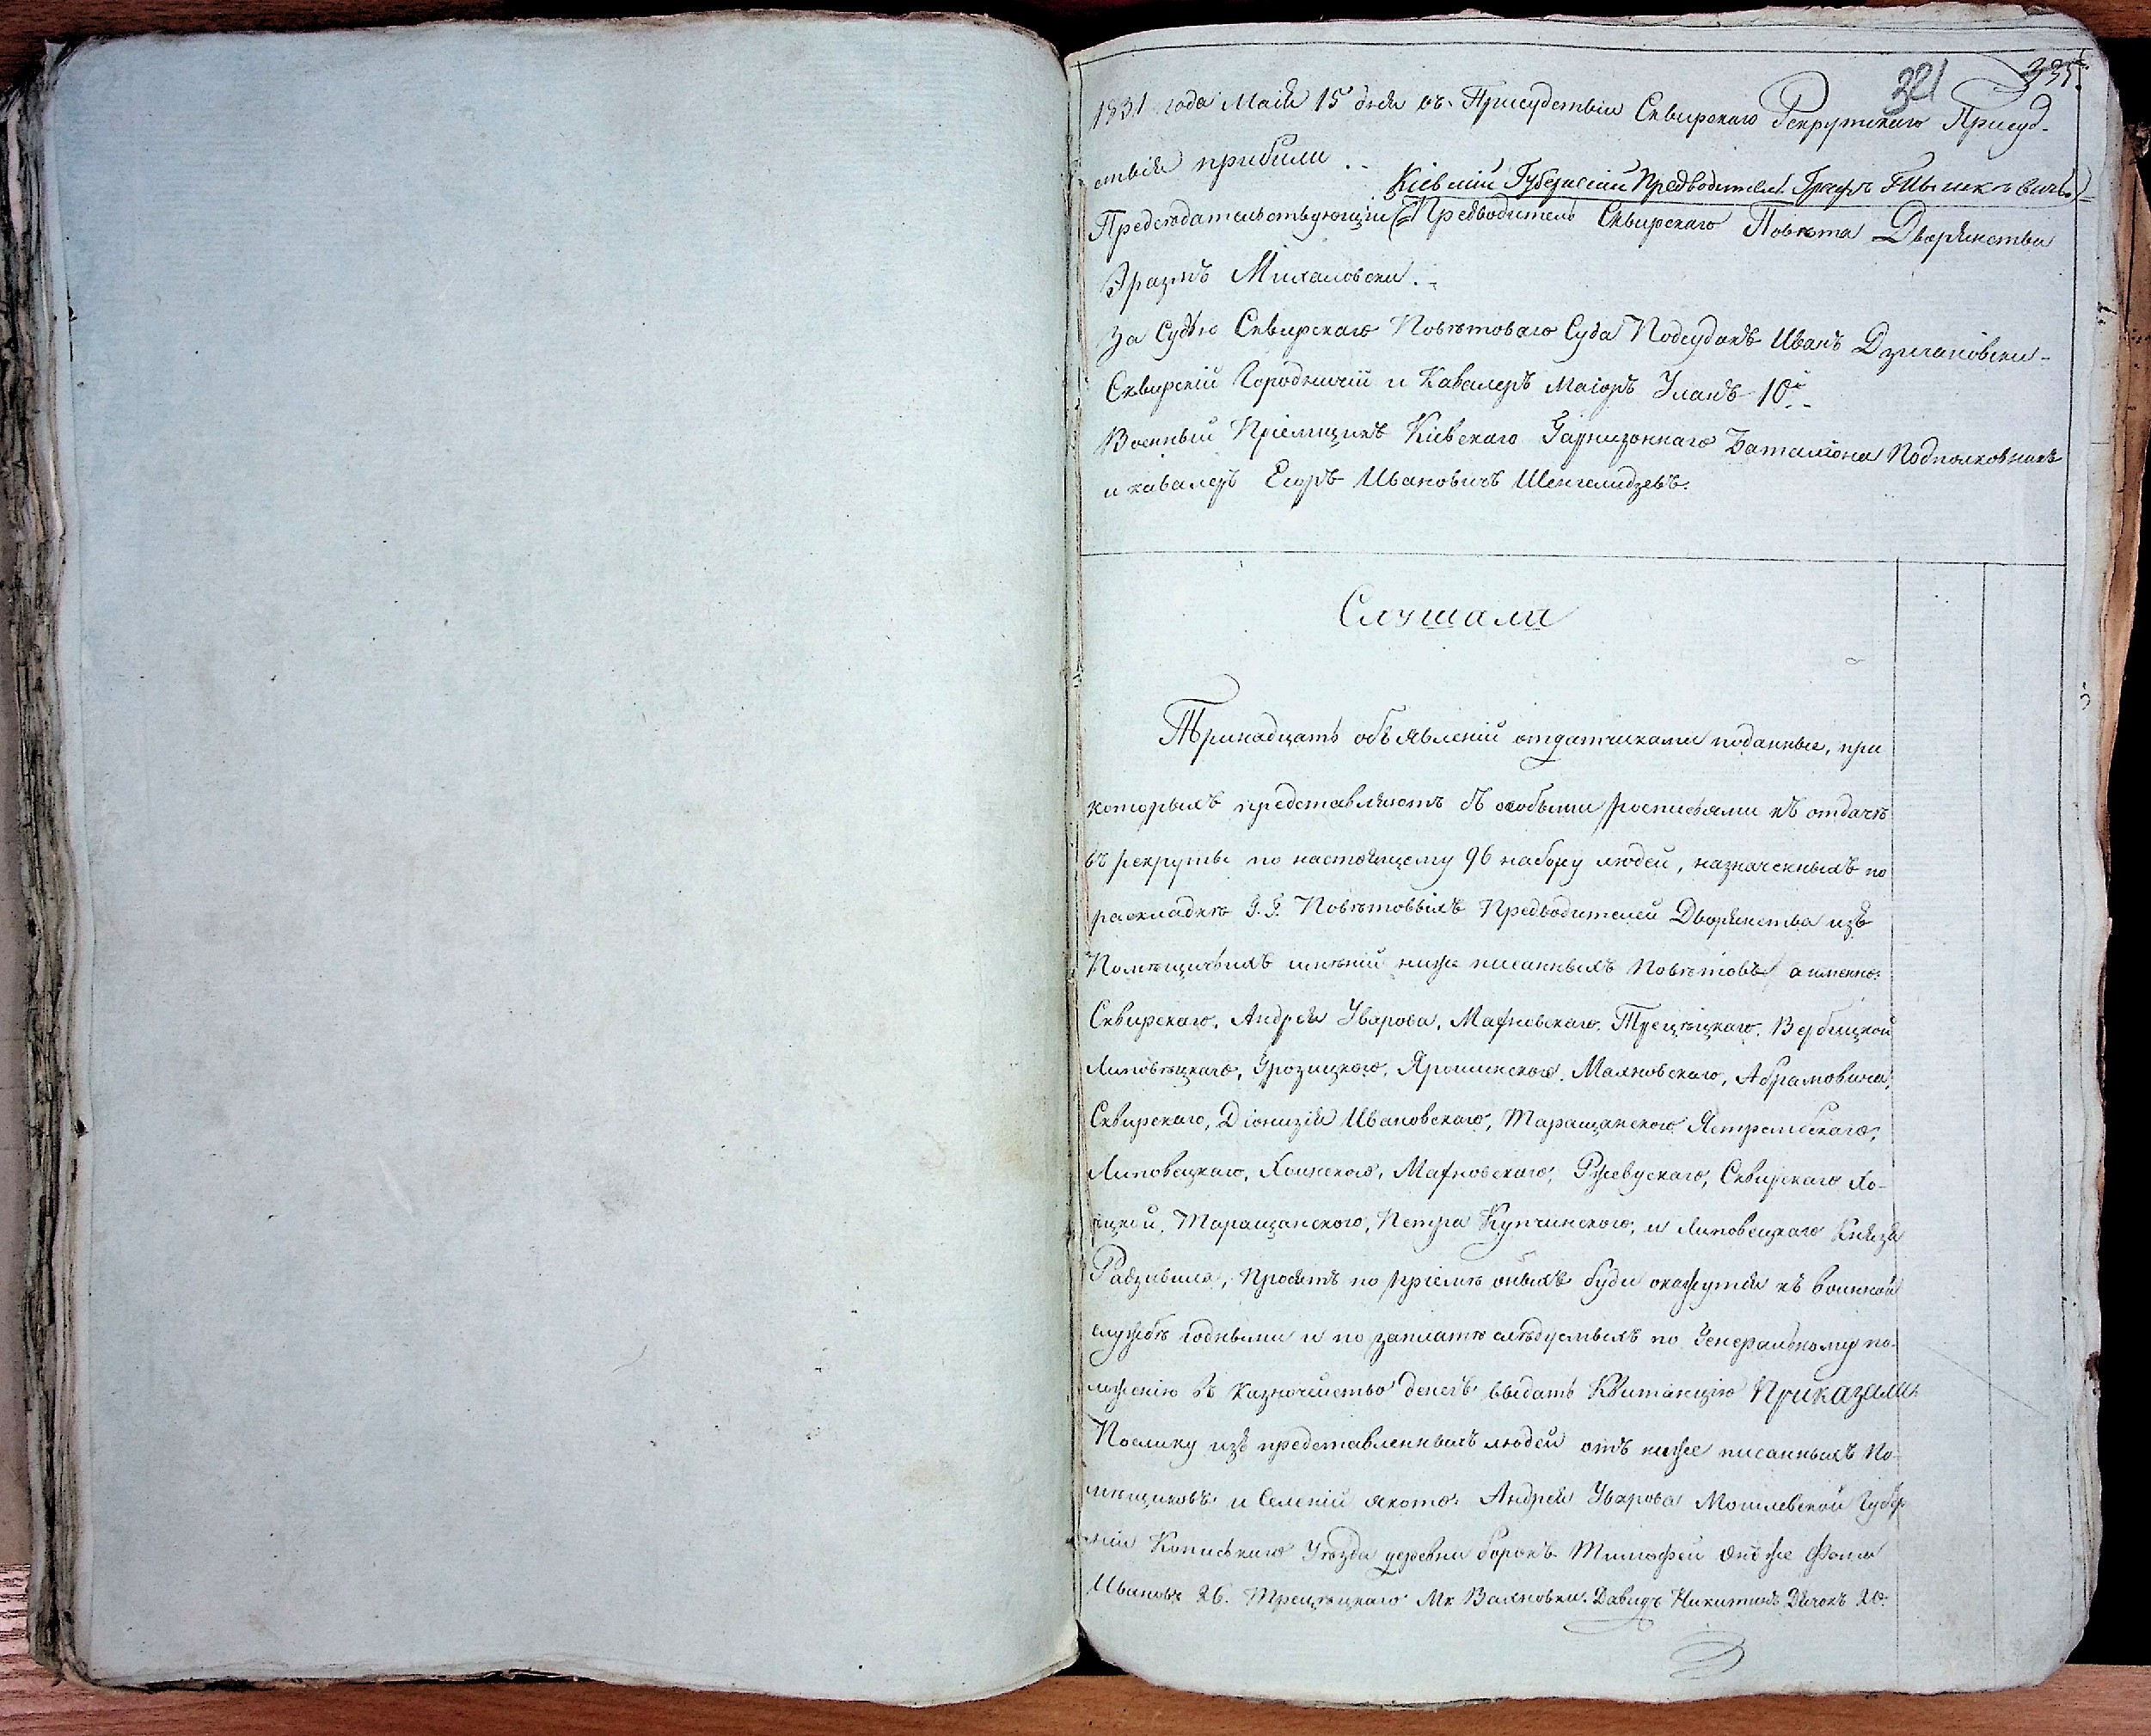 321 335.
1831 года Маія 15 дня въ Присудствіи Сквирскаго Рекрутскаго Присуд-
ствія прибыли . -
Кіевскій Губернскій Предводитель Графъ Тышкевичь
Предсѣдательствующій Предводитель Сквирскаго Повѣта Дворянства
Эразмъ Михаловски . -
За Судью Сквирскаго Повѣтоваго Суда Подсудокъ Иванъ
Сквирскій Городничій и Кавалеръ Маіоръ Уланъ 10й
Военный Пріемщикъ Кіевскаго Гарнизоннаго Баталіона Подполковникъ
и кавалеръ Егоръ Ивановичъ Шенгелидзевъ.
Слушали
Тринадцать объявленій отдатчиками поданные, при
которыхъ представляютъ съ особыми росписями къ отдачѣ
въ рекруты по настоящему 96 набору людей, назначенныхъ по
раскладкѣ Г. Г. Повѣтовыхъ Предводителей Дворянства изъ
Помѣщичьихъ имѣній ниже писанныхъ Повѣтовъ а именно:
Сквирскаго, Андрея Уварова, Махновскаго, Трецѣцкаго, Вербицкой
Липовецкаго, Грозицкаго, Ярошинскаго, Махновскаго, Абрамовича,
Сквирскаго, Діонизія Ивановскаго, Таращанскаго Ястрембскаго,
Липовецкаго, Хоинскаго, Махновскаго, Ржевускаго, Сквирскаго Хо-
ецкой, Таращанскаго, Петра Купчинскаго, и Липовецкаго Князя
Радзивила, Просятъ по пріемѣ оныхъ буди окажутся къ воинской
службѣ годными и по заплатѣ слѣдуемыхъ по Генеральному по-
ложенію въ Казночейство денегъ выдать Квитанцію Приказали
Поелику изъ представленныхъ людей отъ ниже писанныхъ По-
мѣщиковъ и Селеній якото: Андрея Уварова Могилевской Губер
ніи Копыскаго Уѣзда деревни борокъ Тимофей онъ же Фома
Ивановъ 26. Трецѣцкаго Мк Вахновки. Давидъ Никитинъ 20.